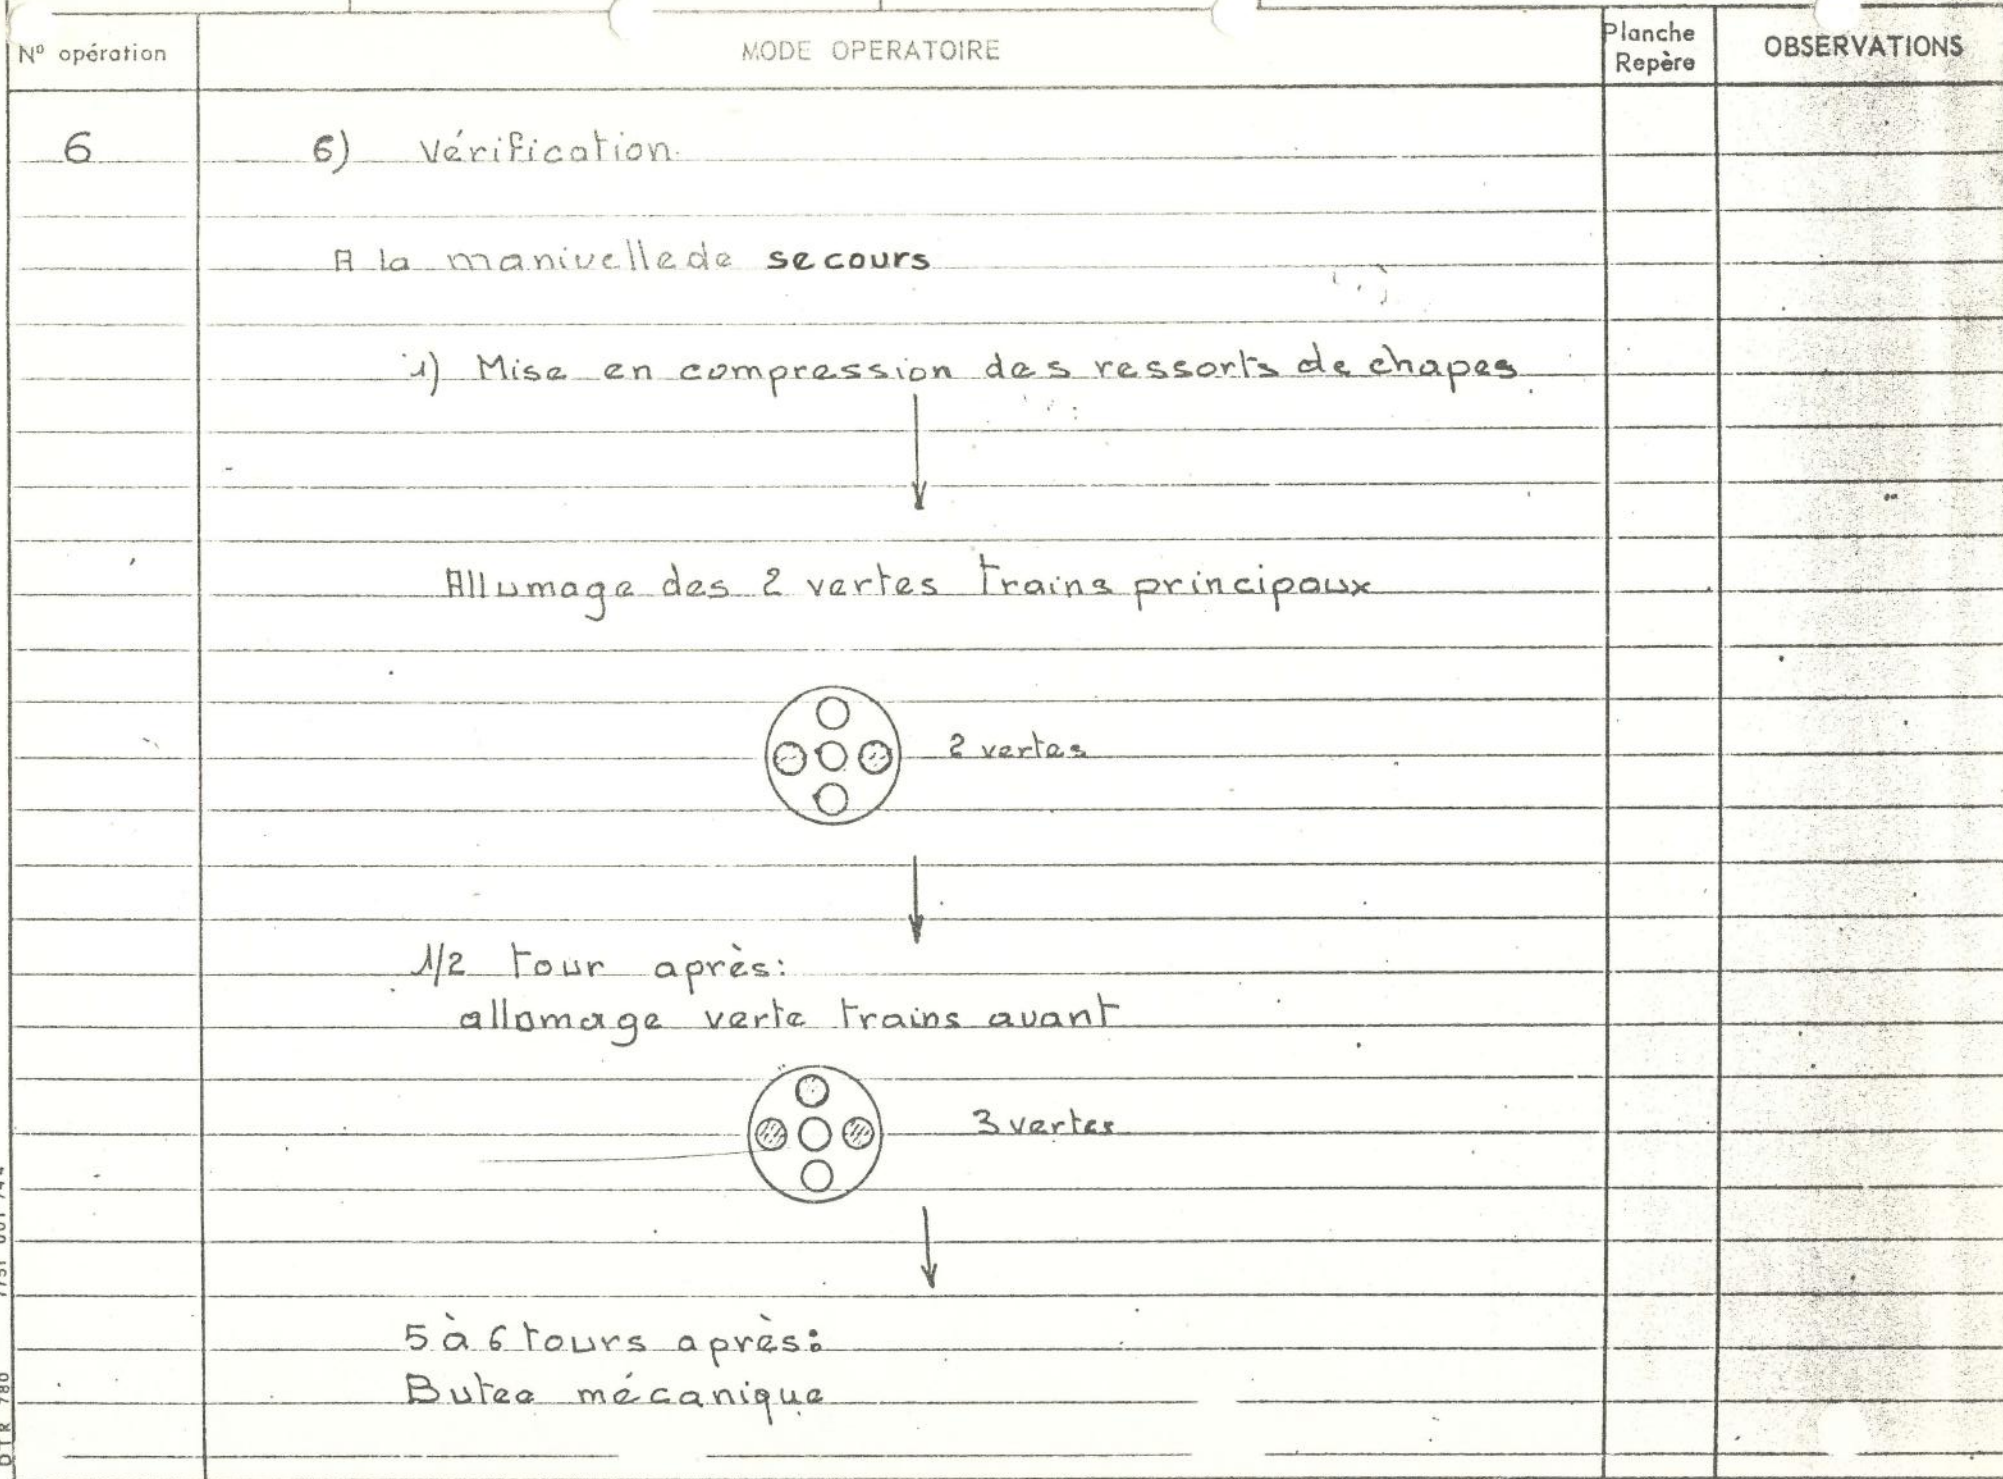 N° opération
MODE OPERATOIRE
Planche
Repère
OBSERVATIONS
6
6) Vérification
A la manivelle de secours
1) Mise en compression des ressorts de chapes
Allumage des 2 vertes trains principaux
2 vertes
1/2 tour après:
allumage verte trains avant
3 vertes
5 à 6 tours après:
Butee mécanique
DTR 780